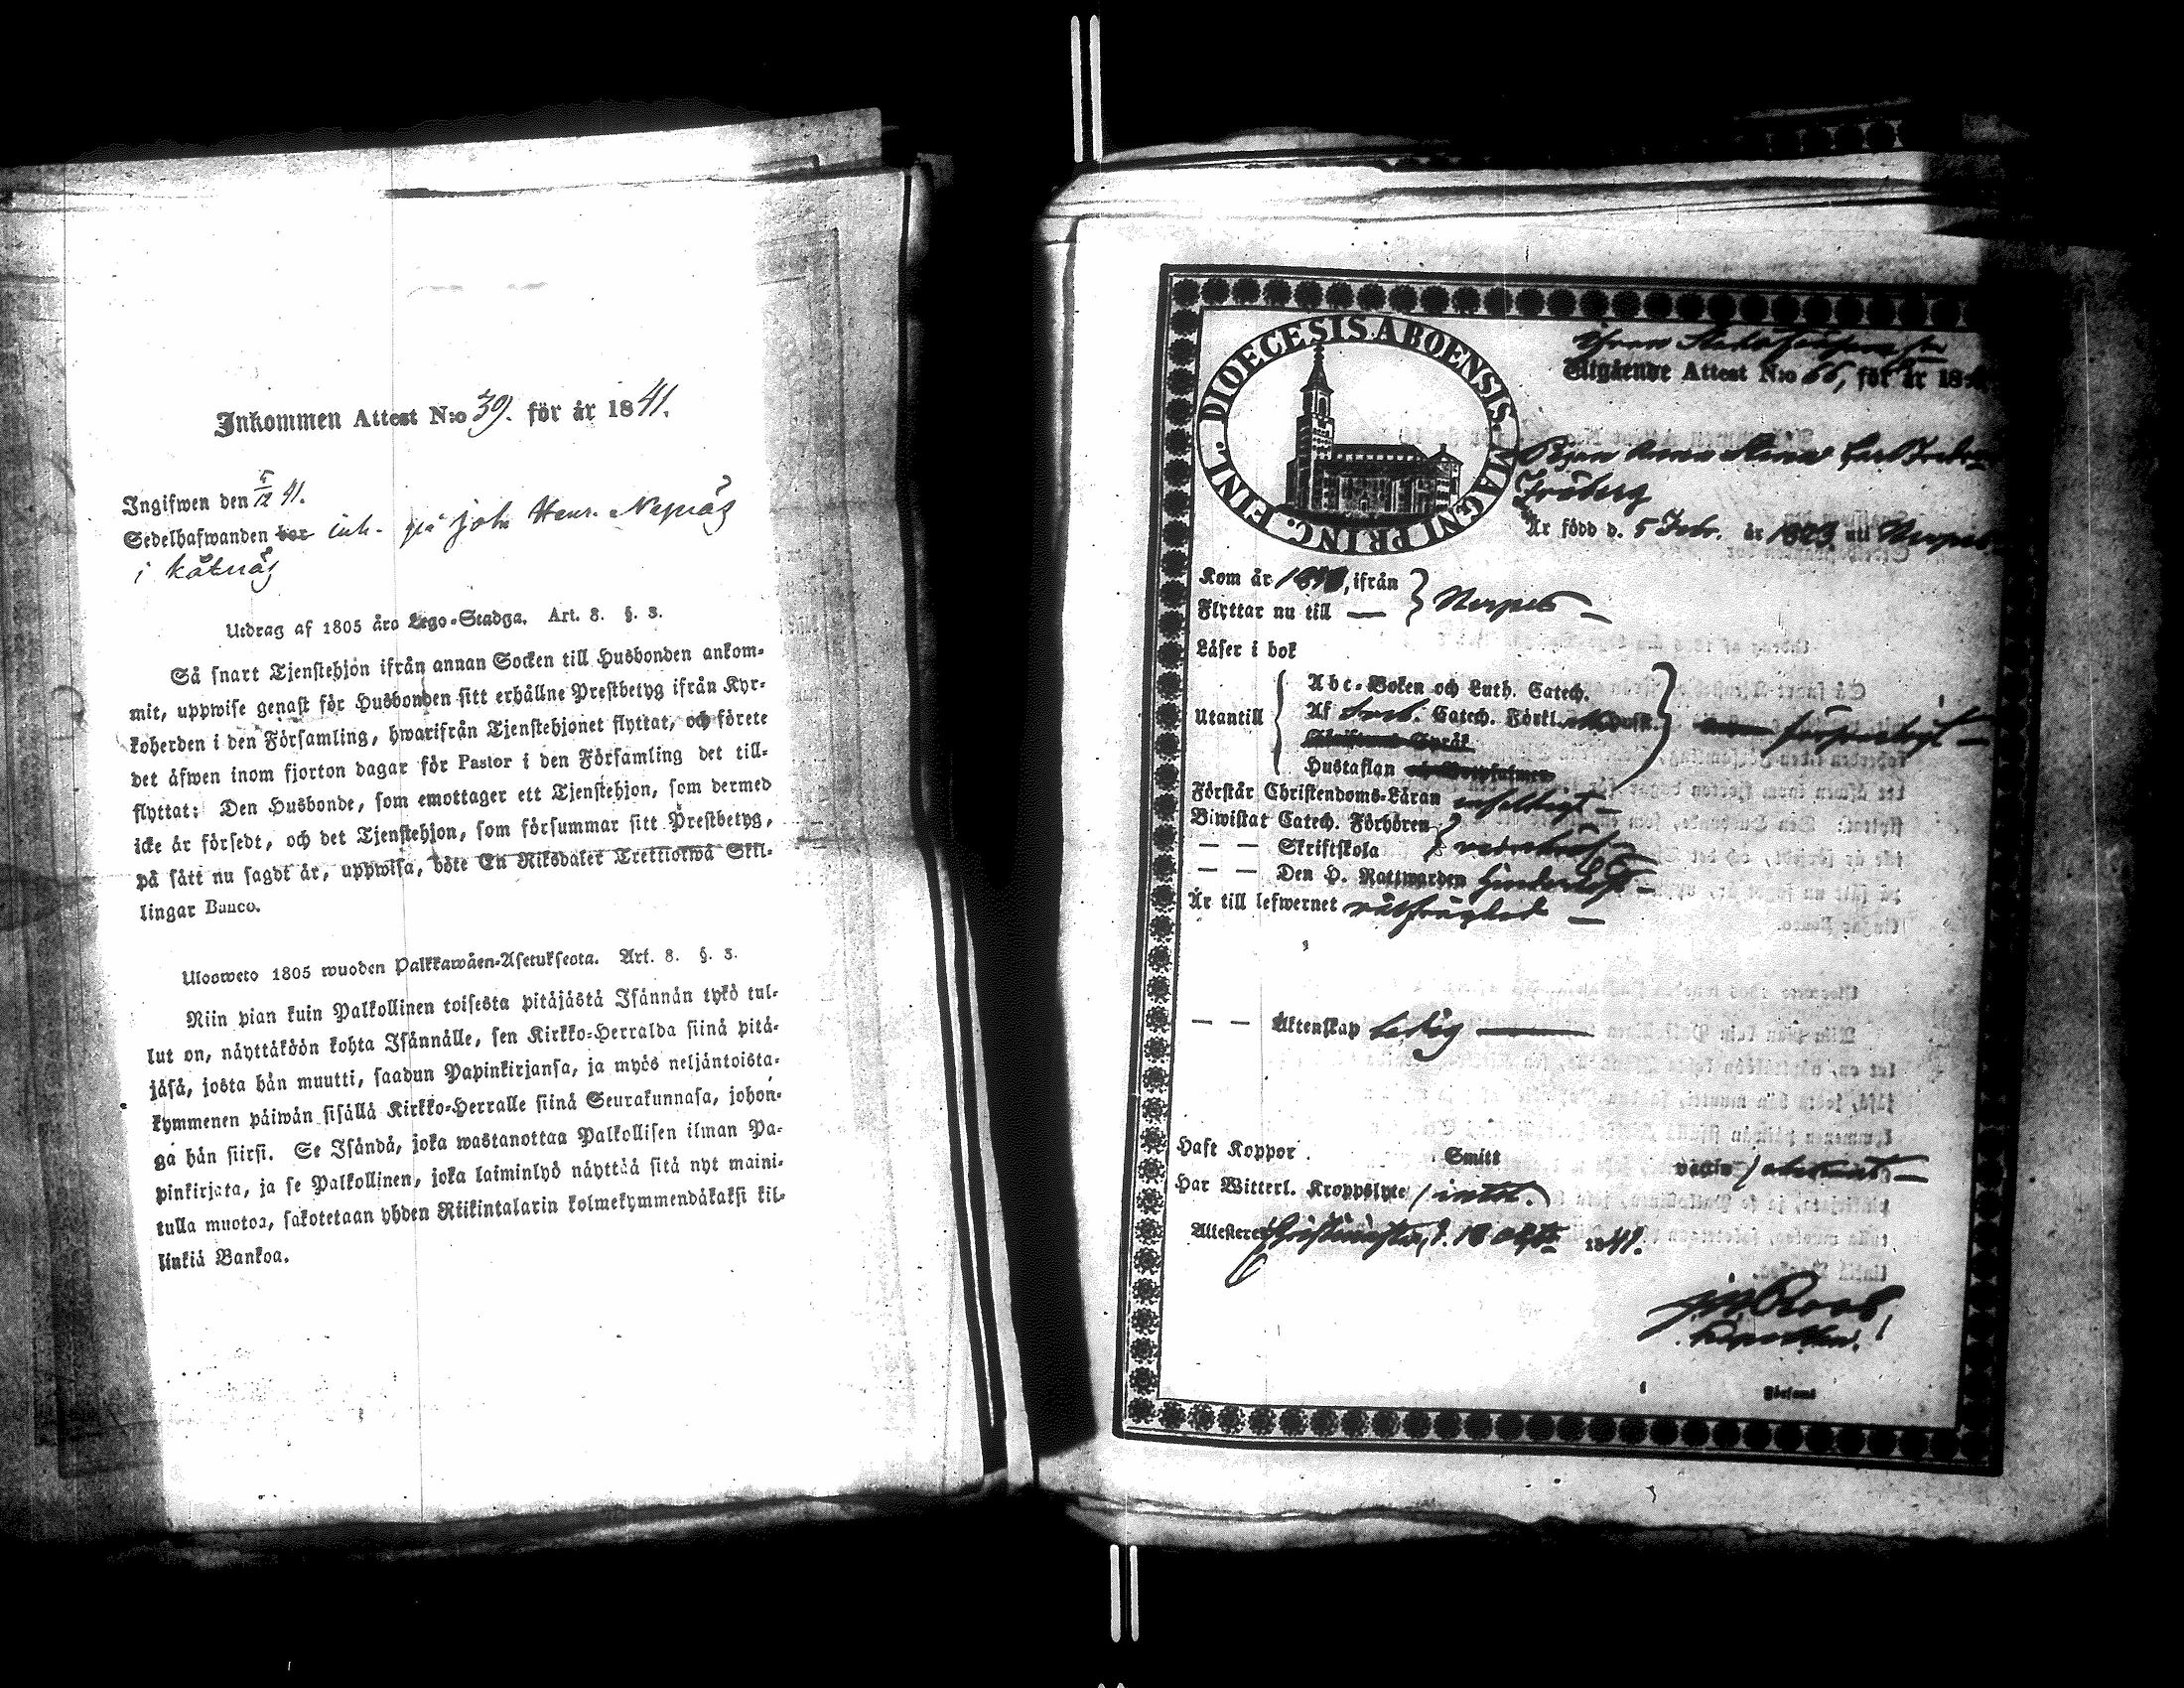 Inkommen Attest N:o 39. för år 1841.
Ingifwen den 5/12 41.
Sedelhafwanden bor inh. på Joh Henr. Nepnäs
i Kåtnäs
Utdrag af 1805 års Lego-Stadga. Art. 8. §. 3.
Så snart Tjenstehjon ifrån annan Socken till Husbonden ankom-
mit, uppwise genast för Husbonden sitt erhållne Prestbetyg ifrån Kyr-
koherden i den Församling, hwarifrån Tjenstehjonet flyttat, och förete
det äfwen inom fjorton dagar för Pastor i den Församling det till-
flyttat: Den Husbonde, som emottager ett Tjenstehjon, som dermed
icke är försedt, och det Tjenstehjon, som försummar sitt Prestbetyg,
på sätt nu sagdt är, uppwisa, böte En Riksdaler Trettiotwå Skil-
lingar Banco.
Ulosweto 1805 wuoden Palkkawäen-Asetuksesta. Art. 8. §. 3.
Niin pian kuin Palkollinen toisesta pitäjästä Isännän tykö tul-
lut on, näyttäköön kohta Isännälle, sen Kirkko-Herralda siinä pitä-
jäsä, josta hän muutti, saadun Papinkirjansa, ja myös neljäntoista-
kymmenen päiwän sisällä Kirkko-Herralle siinä Seurakunnasa, johon-
ga hän siirsi. Se Isändä, joka wastanottaa Palkollisen ilman Pa-
pinkirjata, ja se Palkollinen, joka laiminlyö näyttää sitä nyt maini-
tulla muotoa, sakotetaan yhden Riikintalarin kolmekymmendäkaksi kil-
linkiä Bankoa.
DIOECESIS ABOENSIS. MAGNI PRINC. FINL.
Utgående Attest N:o 66, för år 18
Pigan Anna Carl
Fröberg
Är född d. 5 Febr. år 1823 uti Nerpes
Kom år 18 , ifrån
Flyttar nu till — } Nerpes —
Läser i bok
Utantill
Abc-Boken och Luth. Catech.
Af Catech. Förkl.
Skriftenes Språk
Hustaflan
försvarligt —
Förstår Christendoms-Läran enfaldigt —
Biwistat Catech. Förhören
— — Skriftskola
— — Den H. Nattwarden hinderlöst —
Är till lefwernet välfrägdad —
— — Äktenskap ledig —
Haft Koppor . Smitt vaccin
Har Witterl. Kroppslyte intet.
Attesterer Christinestad, d. 18 1841.
J.M. Roos